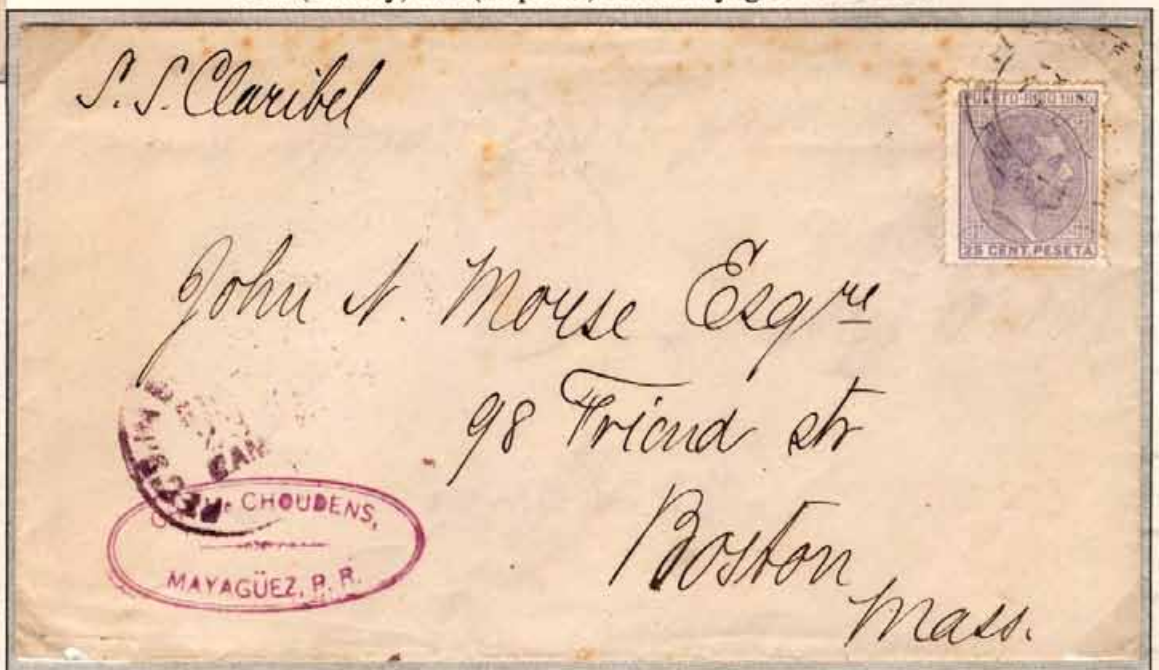 S. S. Claribel
PUERTO-RICO 1880
25 CENT. PESETA
John N. Morse Esqre
98 Friend str
Boston
Mass.
CHOUDENS,
MAYAGÜEZ, P. R.